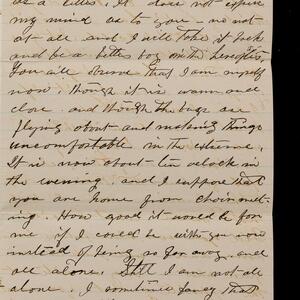 as a letter. It does not express
my mind as to you - no not
at all and I will take it back
and be a better boy on the
You will observe that I am myself
now though it is warm and
close and though the bugs are
flying about and making things
uncomfortable in the extreme.
It is now about ten oclock in
the evening and I suppose that
you are home from choir meet-
ing. How good it would be for
me if I could be with you now
instead of being so far away and
all alone. Still I am not all
alone. I sometimes fancy that